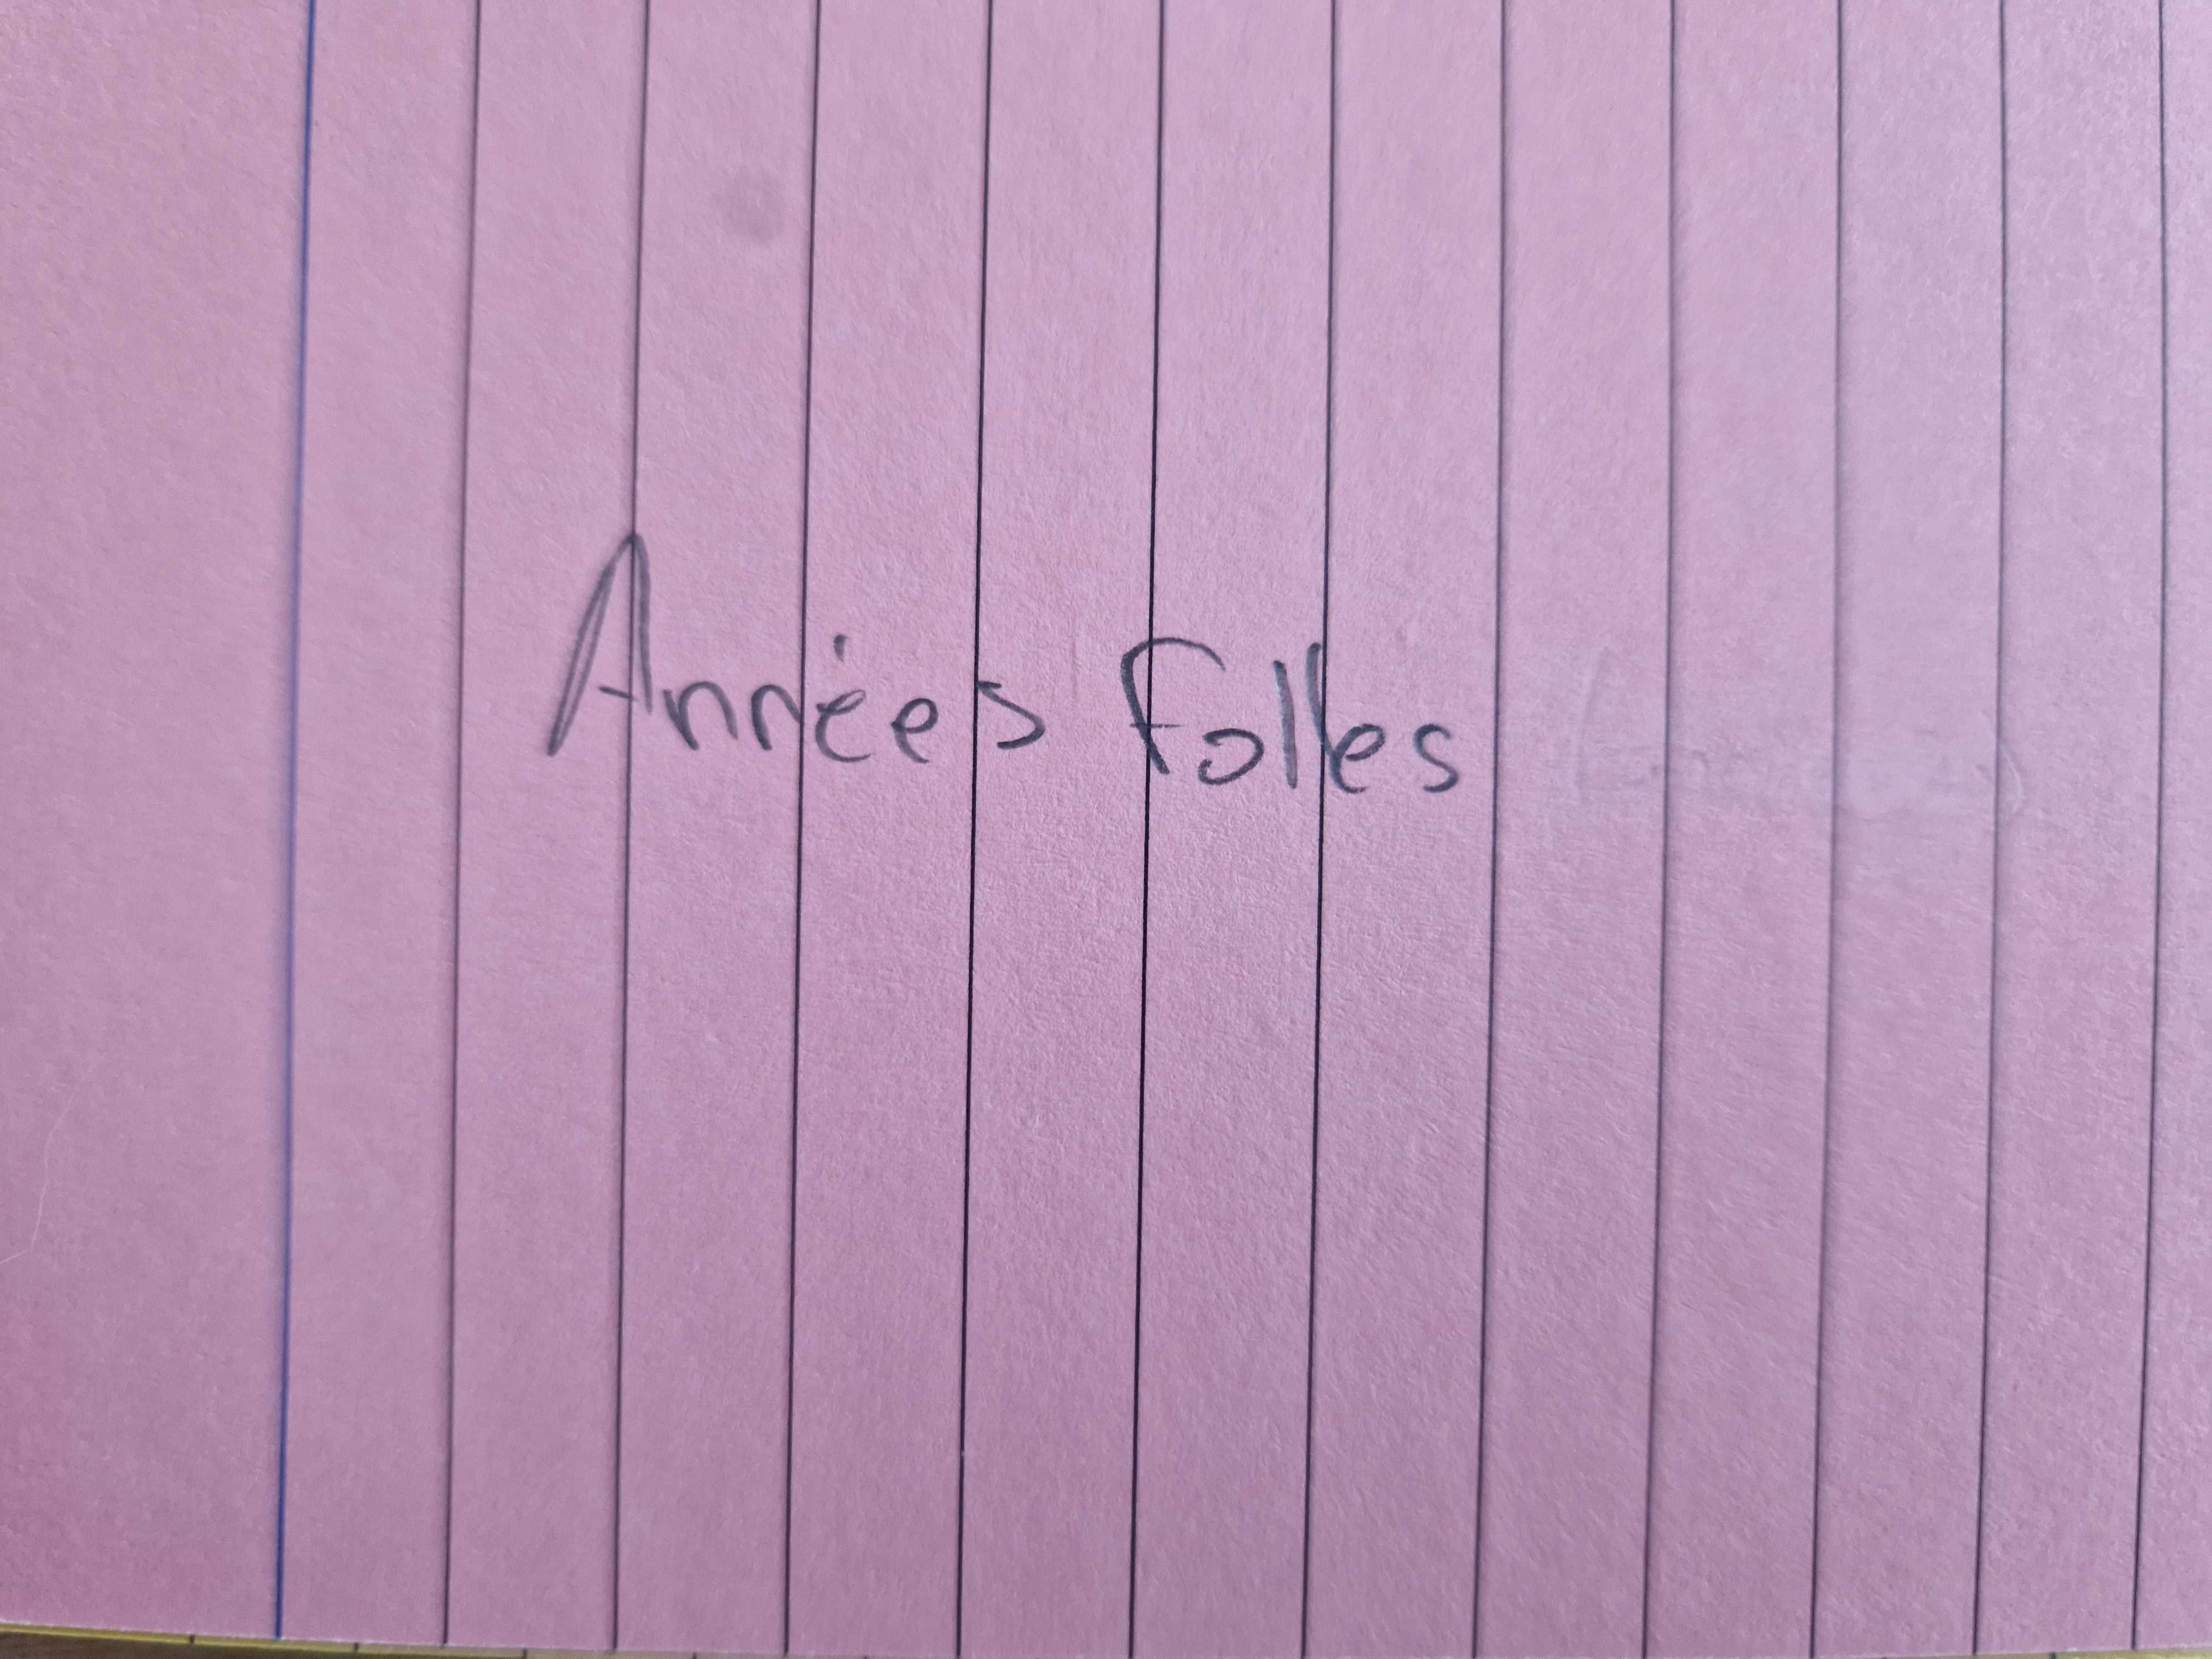 Années folles